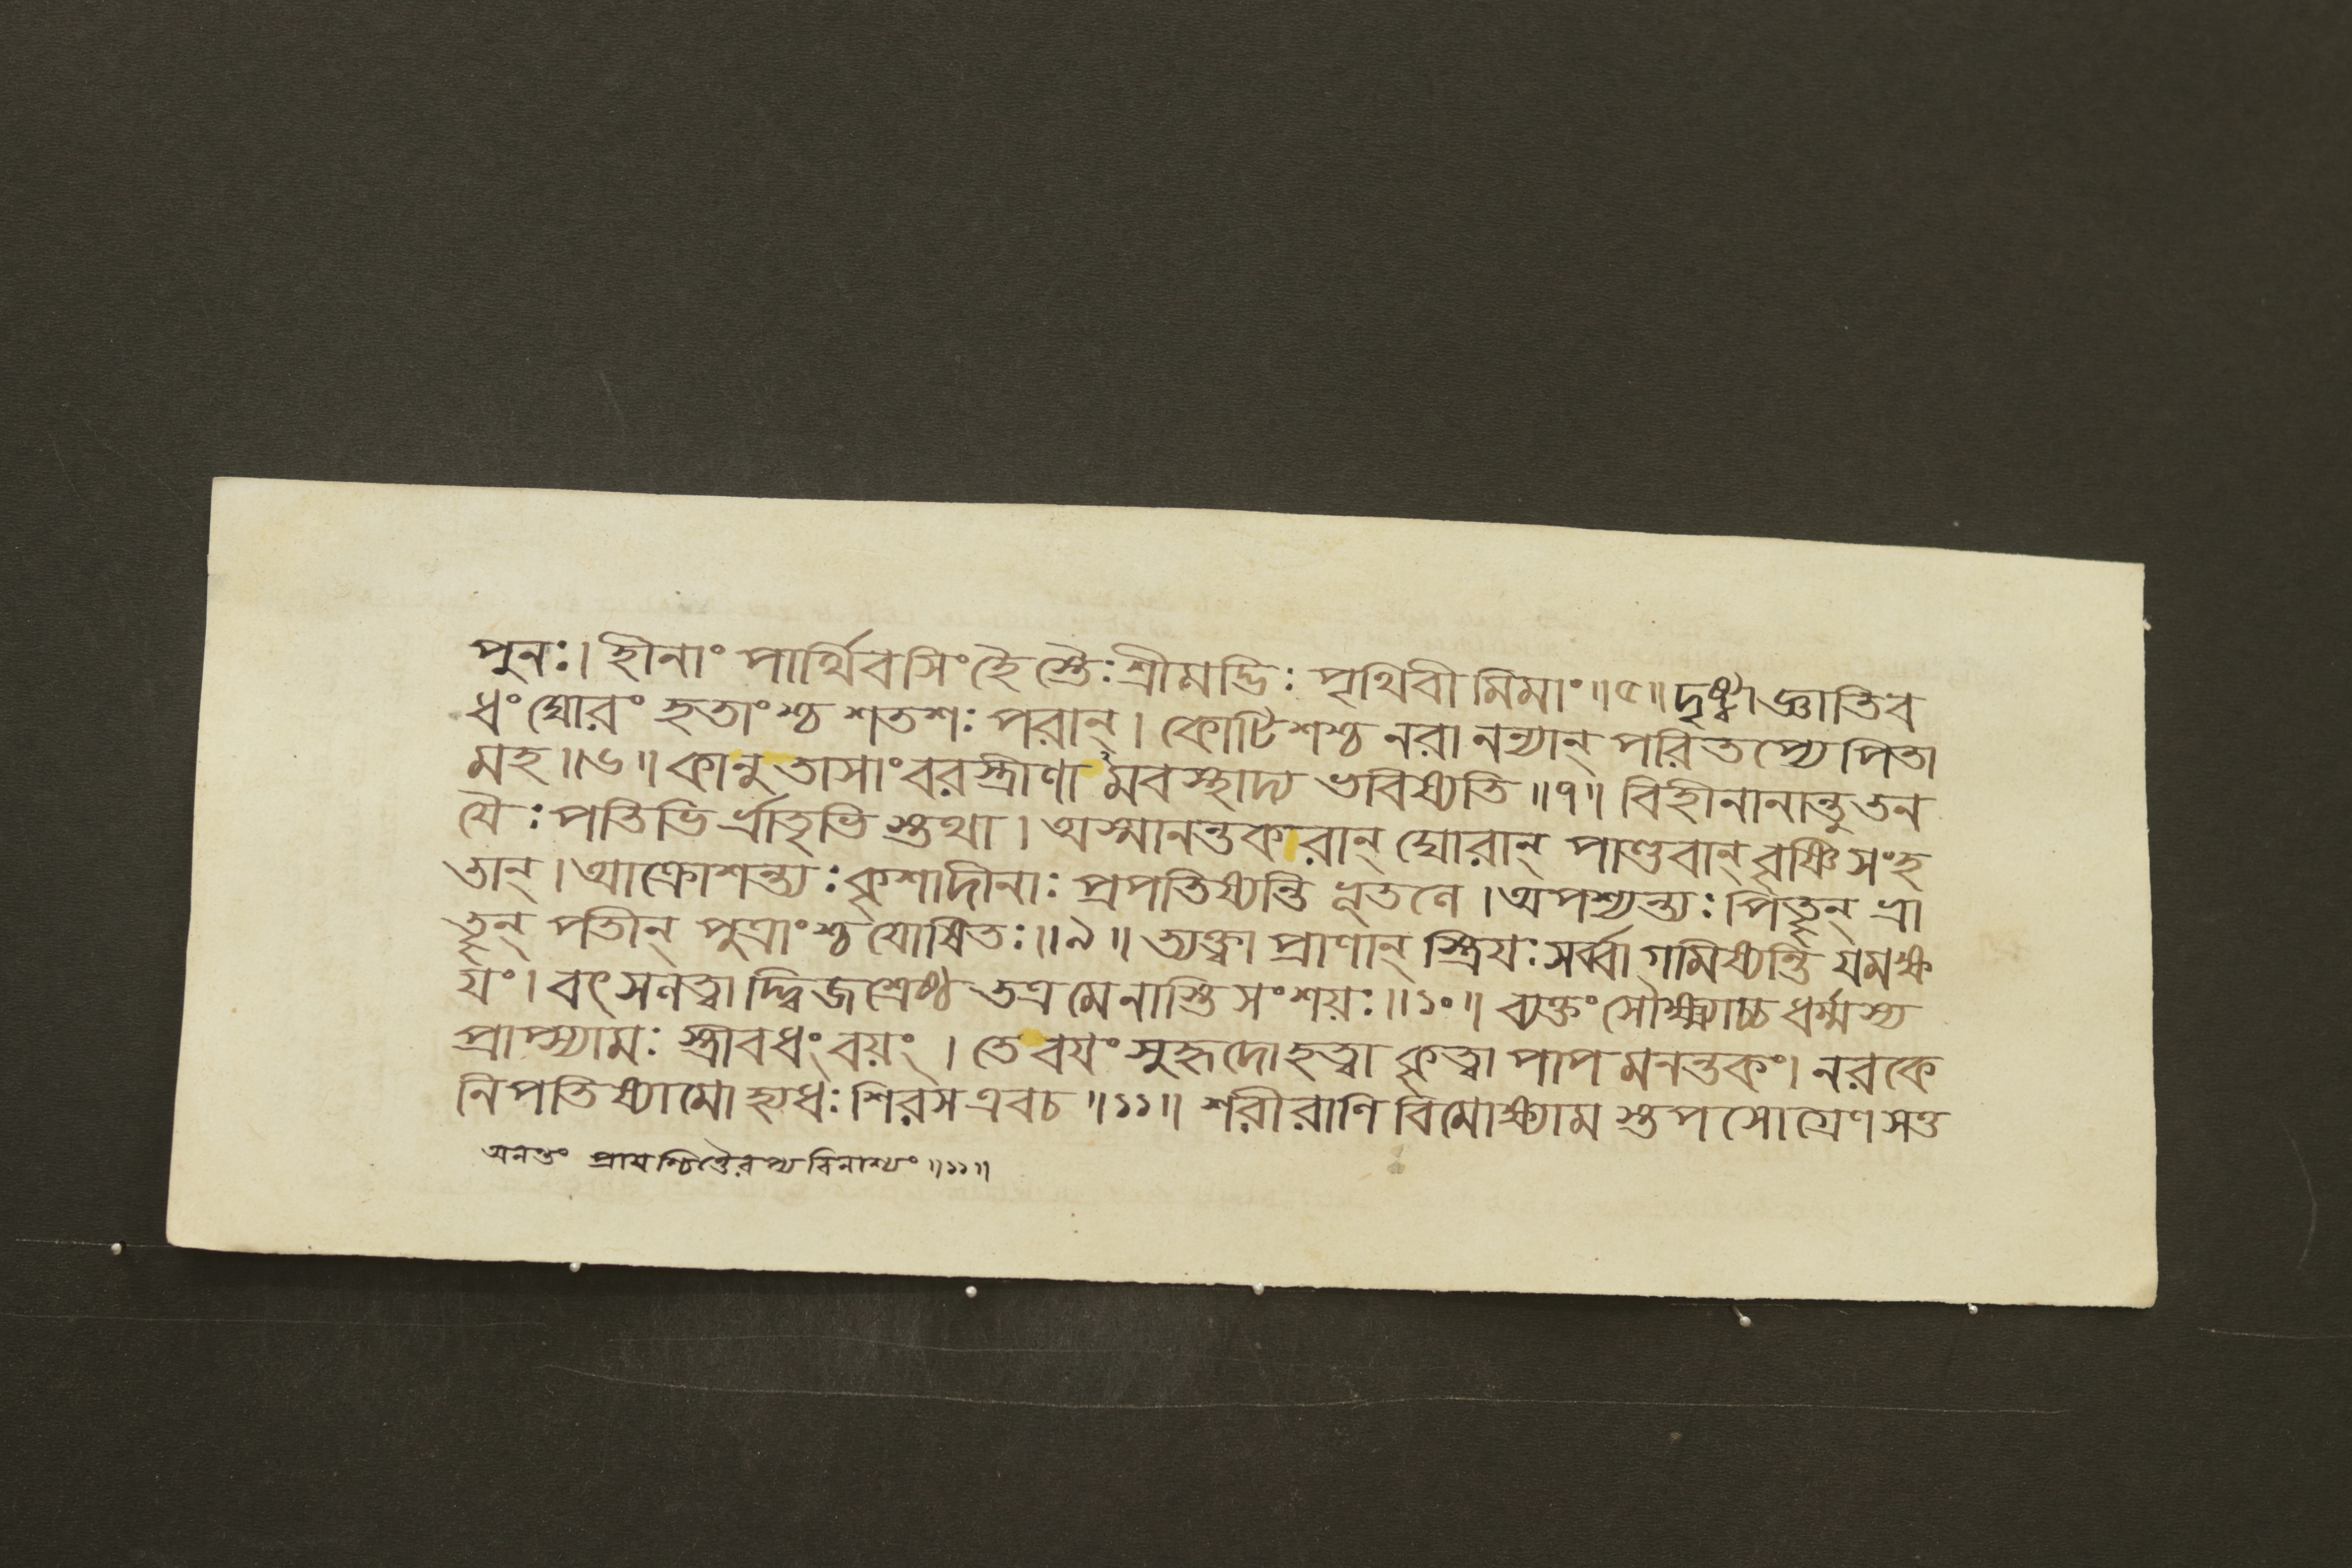 পুনঃ। হীনাং পার্থিবসিংহৈ স্তৈঃ শ্রীমদ্ভিঃ পৃথিবীমিমাং॥৫॥ দৃষ্ট্বা জ্ঞাতিব
ধং ঘোরং হতাংশ্চ শতশঃ পরান্। কোটিশশ্চ নরানন্যান্ পরিতপ্যে পিতা
মহ॥৬॥ কানু তাসাং বরস্ত্রীণা মবস্থাদ্য ভবিষ্যতি॥৭॥ বিহীনানান্তু তন
যৈঃ পতিভি র্ভ্রাতৃভি স্তথা। অস্মানন্তকরান্ ঘোরান্ পাণ্ডবান্ বৃষ্ণিসংহ
তান্। আক্রোশন্ত্যঃ কৃশাদীনাঃ প্রপতিষ্যন্তি ভূতলে। অপশ্যন্ত্যঃ পিতৄন্ ভ্রা
তৄন্ পতীন্ পুত্রাংশ্চ যোষিতঃ॥৯॥ ত্যক্ত্বা প্রাণান্ স্ত্রিযঃ সর্ব্বা গমিষ্যন্তি যমক্ষ
যং। বৎসলত্বা দ্দ্বিজশ্রেষ্ঠ তত্র মে নাস্তি সংশয়ঃ॥১০॥ ব্যক্তং সৌক্ষ্ম্যাচ্চ ধর্ম্মস্য
প্রাপ্স্যামঃ স্ত্রীবধং বয়ং। তে বযং সুহৃদো হত্বা কৃত্বা পাপ মনন্তকং। নরকে
নিপতিষ্যামো হ্যধঃ শিরস এবচ॥১১॥ শরীরাণি বিমোক্ষ্যাম স্তপসোগ্রেণ সত্ত
অনন্তং প্রাযশ্চিত্তৈরপ্য বিনাশ্যং॥১১॥